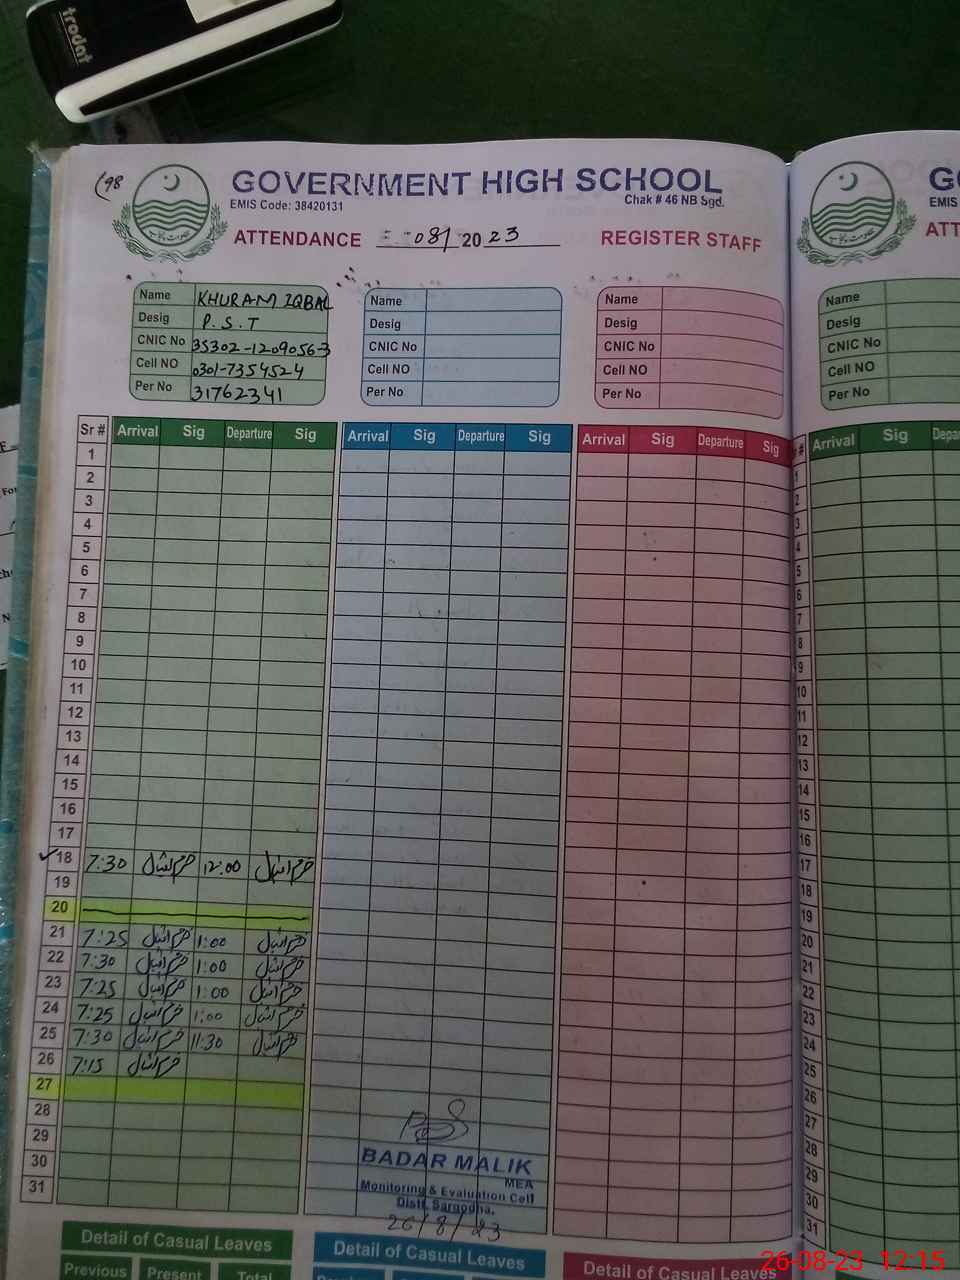 trodat
(98
GOVERNMENT HIGH SCHOOL
EMIS Code: 38420131
Chak # 46 NB Sgd.
ATTENDANCE 08/ 2023 REGISTER STAFF
Name KHURAM IQBAL
Desig P.S.T
CNIC No 35302-1209056-3
Cell NO 0301-7354524
Per No 31762341
Name
Desig
CNIC No
Cell NO
Per No
Name
Desig
CNIC No
Cell NO
Per No
Sr # Arrival Sig Departure Sig Arrival Sig Departure Sig Arrival Sig Departure Sig
1
2
3
4
5
6
7
8
9
10
11
12
13
14
15
16
17
18 7:30 خرم اقبال 12:00 خرم اقبال
19
20
21 7:25 خرم اقبال 1:00 خرم اقبال
22 7:30 خرم اقبال 1:00 خرم اقبال
23 7:25 خرم اقبال 1:00 خرم اقبال
24 7:25 خرم اقبال 1:00 خرم اقبال
25 7:30 خرم اقبال 11:30 خرم اقبال
26 7:15 خرم اقبال
27
28
29
30
31
BADAR MALIK
MEA
Monitoring & Evaluation Cell
Distt. Sargodha.
26/8/23
Detail of Casual Leaves
Previous Present Total
Detail of Casual Leaves
Detail of Casual Leaves
EMIS
Name
Desig
CNIC No
Cell NO
Per No
Arrival Sig
1
2
3
4
5
6
7
8
9
10
11
12
13
14
15
16
17
18
19
20
21
22
23
24
25
26
27
28
29
30
31
26-08-23 12:15